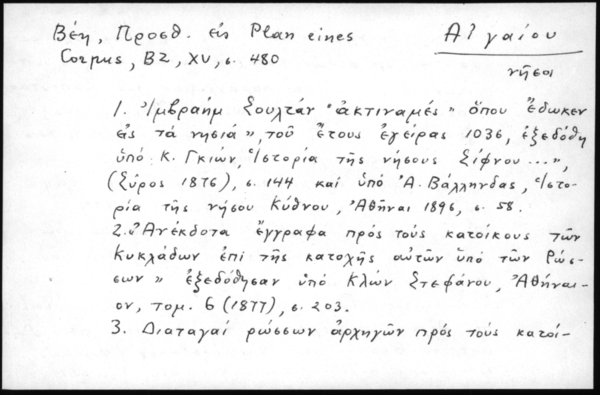 Βέη, Προσθ. εἰς Plan eines
Αἰγαίου
Corpus, BZ, XV, σ. 480
νῆσοι
1. Ἰμβραήμ Σουλτάν "ἀκτιναμές" ὅπου ἔδωκεν
εἰς τά νησιά", τοῦ ἔτους ἐγείρας 1036, ἐξεδόθη
ὑπό Κ. Γκιών, Ἱστορία τῆς νήσους Σίφνου ...",
(Σύρος 1876), σ. 144 καί ὑπό Ἀ. Βάλληνδας, Ἱστο-
ρία τῆς νήσου Κύθνου, Ἀθῆναι 1896, σ. 58.
2. "Ἀνέκδοτα ἔγγραφα πρός τούς κατοίκους τῶν
Κυκλάδων ἐπί τῆς κατοχῆς αὐτῶν ὑπό τῶν Ρώσ-
σων" ἐξεδόθησαν ὑπό Κλών Στεφάνου, Ἀθήναι-
ον, τομ. 6 (1877), σ. 203.
3. Διαταγαί ρώσσων ἀρχηγῶν πρός τούς κατοί-